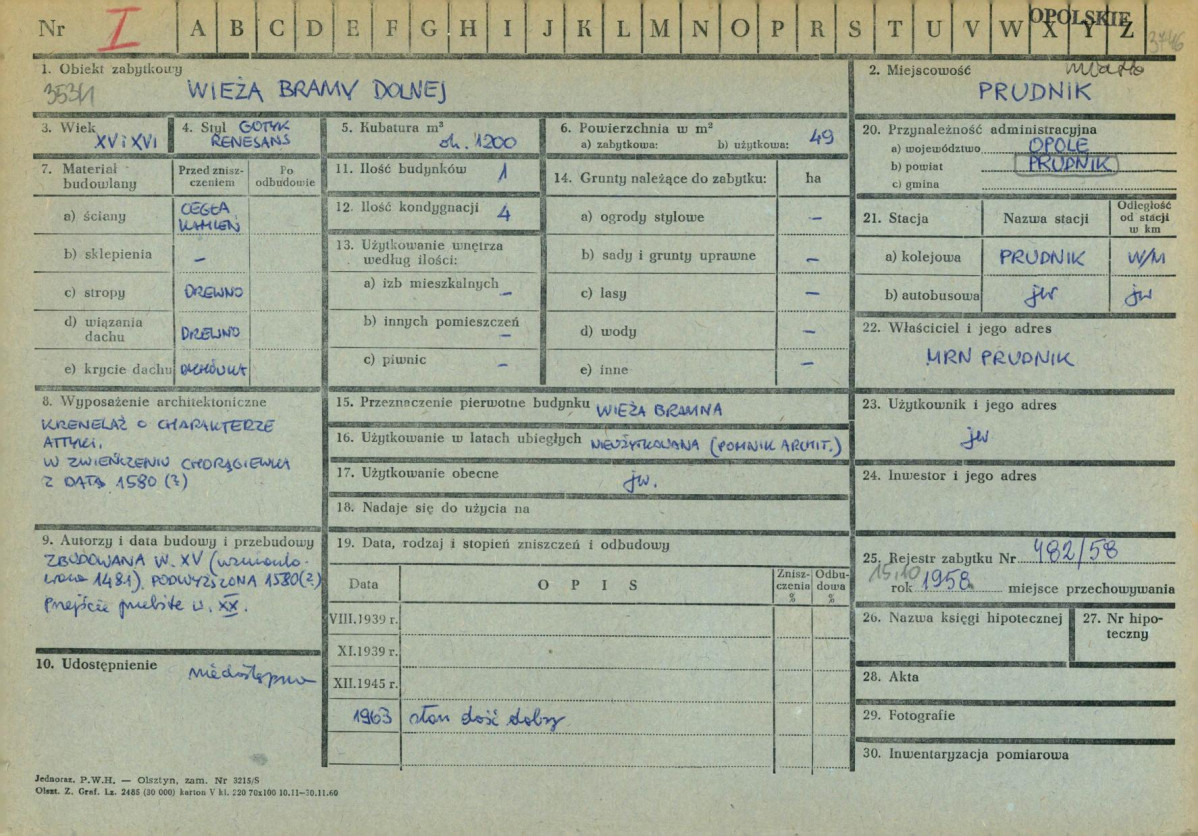 Nr I A B C D E F G H I J K L M N O P R S T U V W X Y Z
OPOLSKIE
3746
1. Obiekt zabytkowy
353/1
WIEŻA BRAMY DOLNEJ
2. Miejscowość
miasto
PRUDNIK
3. Wiek
XV i XVI
4. Styl GOTYK
RENESANS
5. Kubatura m³
ok. 1200
6. Powierzchnia w m²
a) zabytkowa: b) użytkowa: 49
20. Przynależność administracyjna
a) województwo OPOLE
b) powiat PRUDNIK
c) gmina
7. Materiał budowlany
Przed zniszczeniem
Po odbudowie
a) ściany CEGŁA
KAMIEŃ
b) sklepienia –
c) stropy DREWNO
d) wiązania dachu DREWNO
e) krycie dachu DACHÓWKA
11. Ilość budynków 1
12. Ilość kondygnacji 4
13. Użytkowanie wnętrza
według ilości:
a) izb mieszkalnych –
b) innych pomieszczeń –
c) piwnic –
14. Grunty należące do zabytku: ha
a) ogrody stylowe –
b) sady i grunty uprawne –
c) lasy –
d) wody –
e) inne –
21. Stacja Nazwa stacji Odległość od stacji w km
a) kolejowa PRUDNIK W/M
b) autobusowa jw jw
22. Właściciel i jego adres
MRN PRUDNIK
8. Wyposażenie architektoniczne
KRENELAŻ O CHARAKTERZE
ATTYKI.
W ZWIEŃCZENIU CHORĄGIEWKA
Z DATĄ 1580 (?)
15. Przeznaczenie pierwotne budynku WIEŻA BRAMNA
16. Użytkowanie w latach ubiegłych NIEUŻYTKOWANA (POMNIK ARCHIT.)
17. Użytkowanie obecne jw.
18. Nadaje się do użycia na
23. Użytkownik i jego adres
jw.
24. Inwestor i jego adres
9. Autorzy i data budowy i przebudowy
ZBUDOWANA W. XV (wzmianko-
wana 1481), PODWYŻSZONA 1580(?)
przejście przebite w. XX.
10. Udostępnienie niedostępna
19. Data, rodzaj i stopień zniszczeń i odbudowy
Data OPIS Zniszczenia % Odbudowa %
VIII.1939 r.
XI.1939 r.
XII.1945 r.
1963 stan dość dobry
25. Rejestr zabytku Nr 482/58
15.10
rok 1958 miejsce przechowywania
26. Nazwa księgi hipotecznej
27. Nr hipoteczny
28. Akta
29. Fotografie
30. Inwentaryzacja pomiarowa
Jednoraz. P.W.H. — Olsztyn, zam. Nr 3215/S
Olszt. Z. Graf. Lz. 2485 (30 000) karton V kl. 220 70x100 10.11—30.11.60